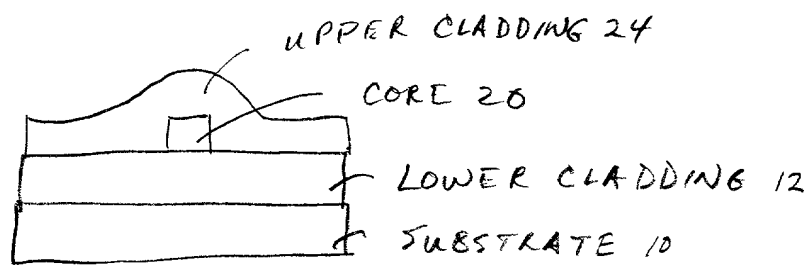 UPPER CLADDING 24
CORE 20
LOWER CLADDING 12
SUBSTRATE 10